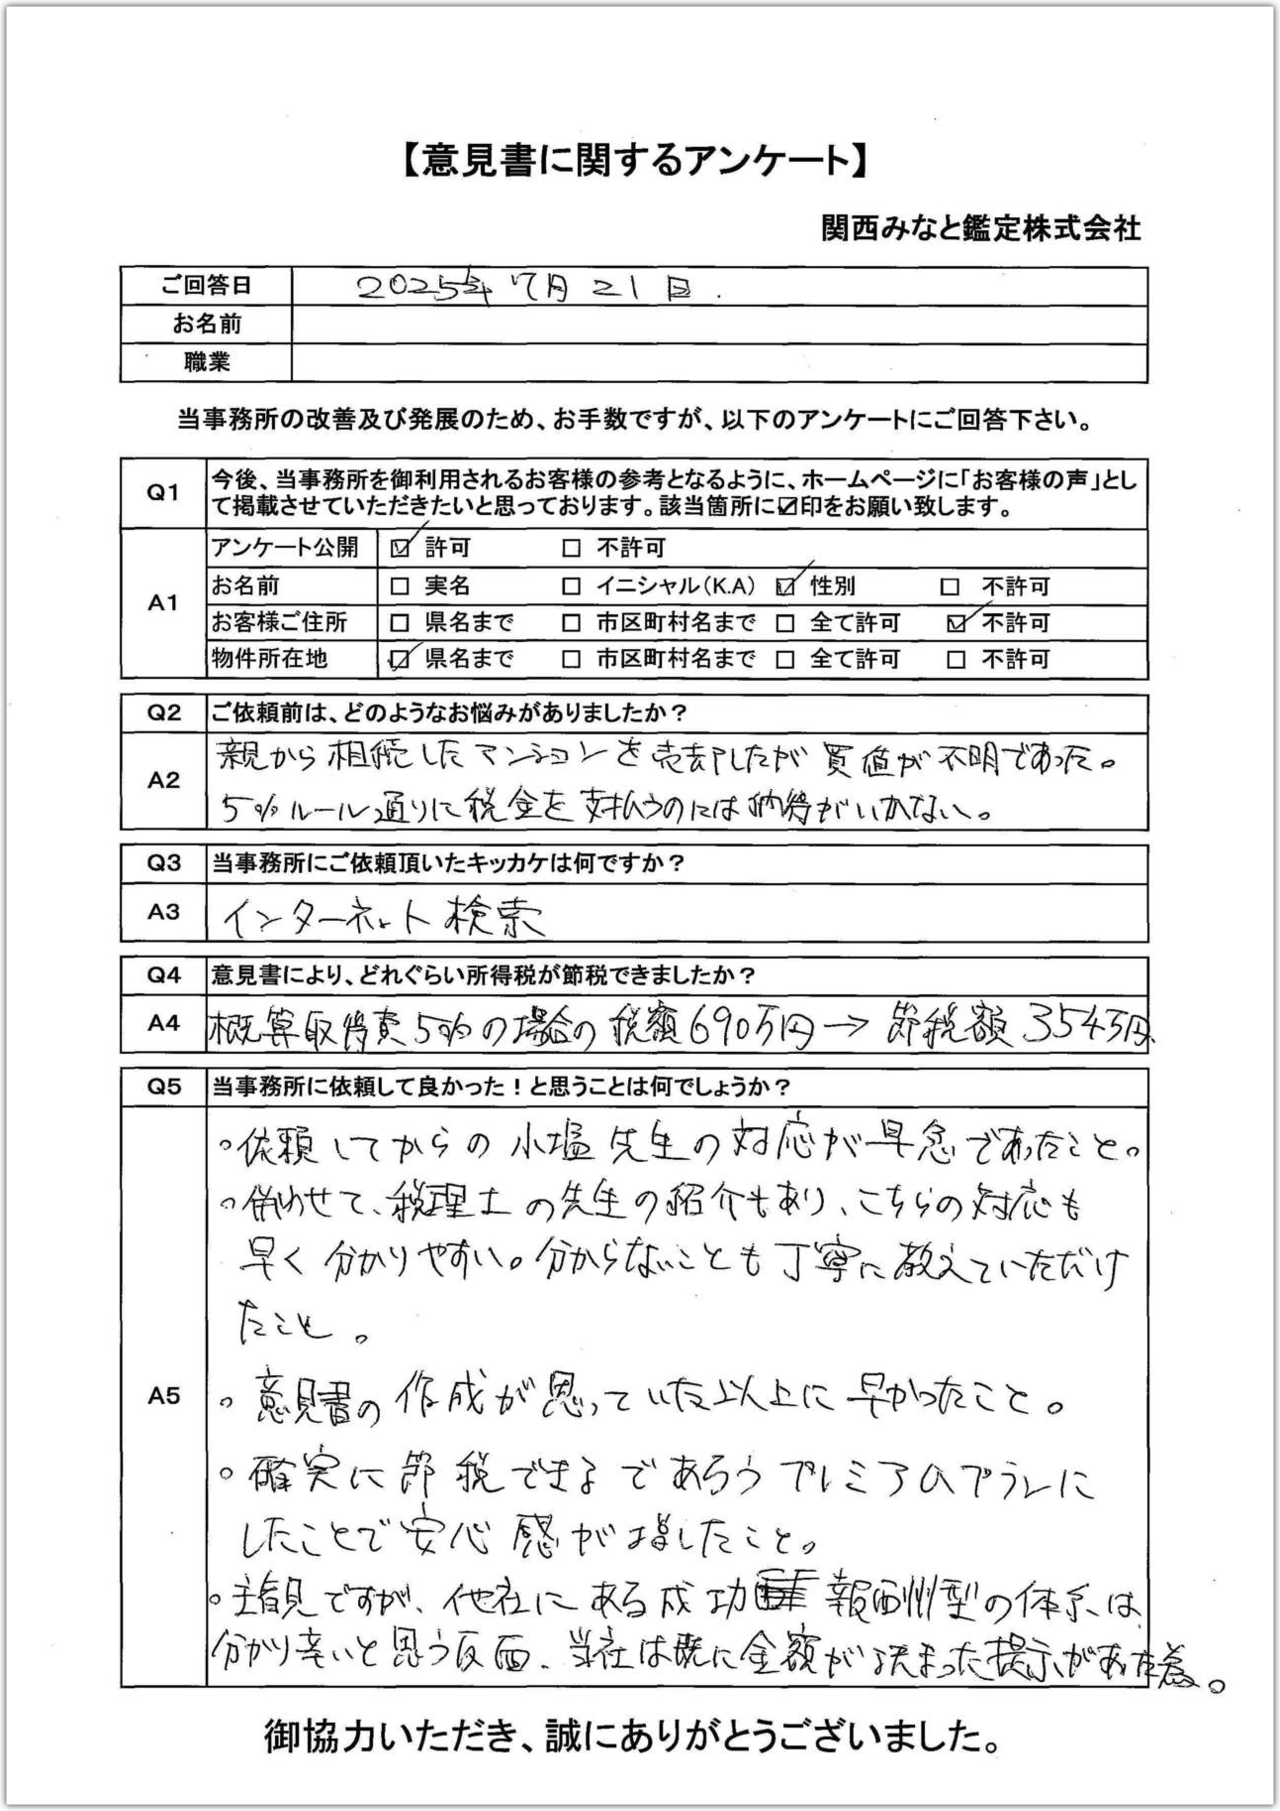 【意見書に関するアンケート】
関西みなと鑑定株式会社
ご回答日 2025年7月21日.
お名前
職業
当事務所の改善及び発展のため、お手数ですが、以下のアンケートにご回答下さい。
Q1 今後、当事務所を御利用されるお客様の参考となるように、ホームページに「お客様の声」とし
て掲載させていただきたいと思っております。該当箇所に☑印をお願い致します。
A1
アンケート公開 ☑ 許可 □ 不許可
お名前 □ 実名 □ イニシャル(K.A) ☑ 性別 □ 不許可
お客様ご住所 □ 県名まで □ 市区町村名まで □ 全て許可 ☑ 不許可
物件所在地 ☑ 県名まで □ 市区町村名まで □ 全て許可 □ 不許可
Q2 ご依頼前は、どのようなお悩みがありましたか?
A2 親から相続したマンションを売却したが買値が不明であった。
5%ルール通りに税金を支払うのには納得がいかない。
Q3 当事務所にご依頼頂いたキッカケは何ですか?
A3 インターネット検索
Q4 意見書により、どれぐらい所得税が節税できましたか?
A4 概算取得費5%の場合の税額690万円→節税額354万円
Q5 当事務所に依頼して良かった!と思うことは何でしょうか?
A5
。依頼してからの小塩先生の対応が早急であったこと。
。併わせて、税理士の先生の紹介もあり、こちらの対応も
早く分かりやすい。分からないことも丁寧に教えていただけ
たこと。
。意見書の作成が思っていた以上に早かったこと。
。確実に節税できるであろうプレミアムプランに
したことで安心感が増したこと。
。主観ですが、他社にある成功報酬型の体系は
分かり辛いと思う反面、当社は既に金額が決まった提示があった為。
御協力いただき、誠にありがとうございました。